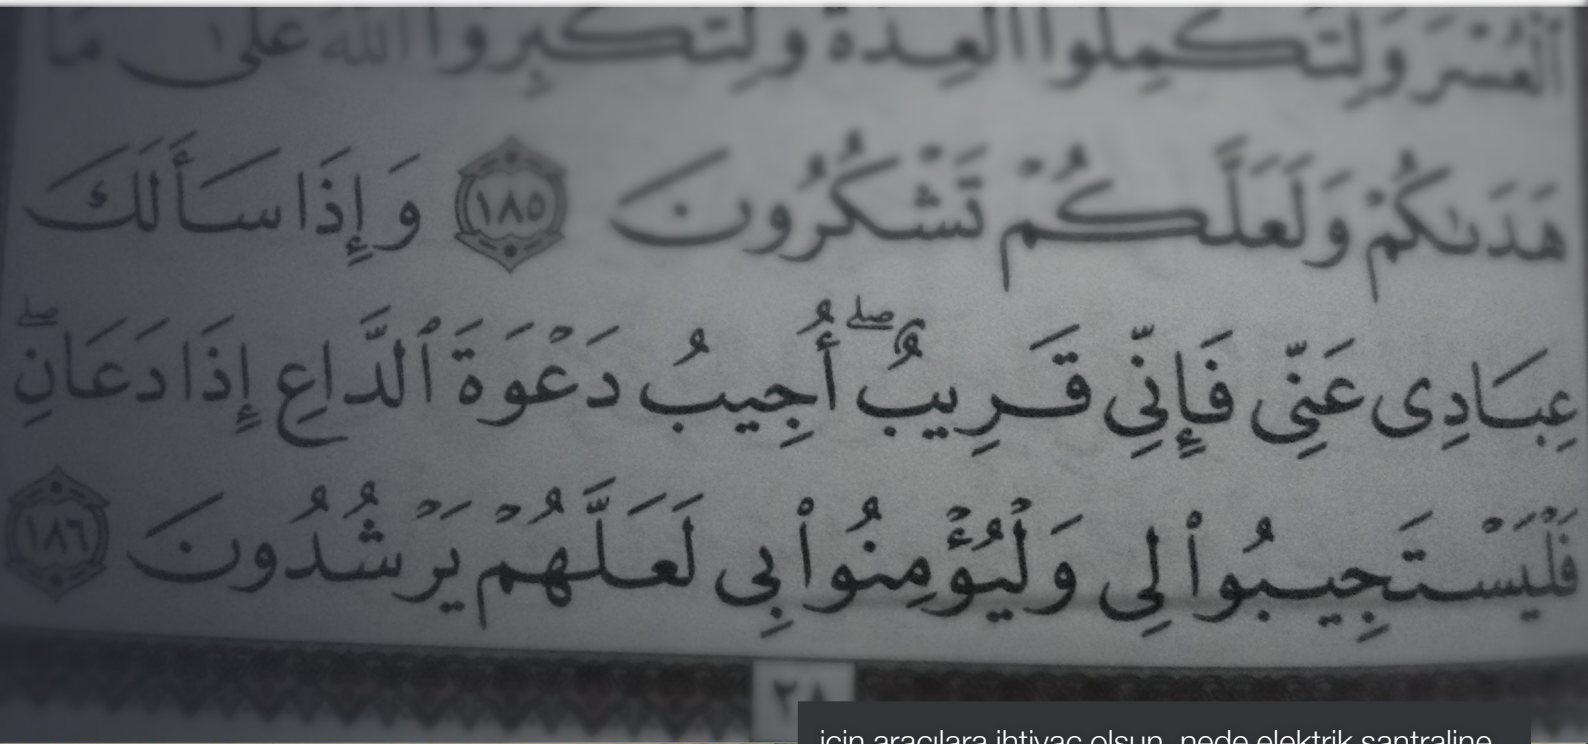 ٱلْعُسْرَ وَلِتُكْمِلُوا۟ ٱلْعِدَّةَ وَلِتُكَبِّرُوا۟ ٱللَّهَ عَلَىٰ مَا
هَدَىٰكُمْ وَلَعَلَّكُمْ تَشْكُرُونَ ١٨٥ وَإِذَا سَأَلَكَ
عِبَادِى عَنِّى فَإِنِّى قَرِيبٌ ۖ أُجِيبُ دَعْوَةَ ٱلدَّاعِ إِذَا دَعَانِ ۖ
فَلْيَسْتَجِيبُوا۟ لِى وَلْيُؤْمِنُوا۟ بِى لَعَلَّهُمْ يَرْشُدُونَ ١٨٦
٢٨
için aracılara ihtiyaç olsun, nede elektrik santraline